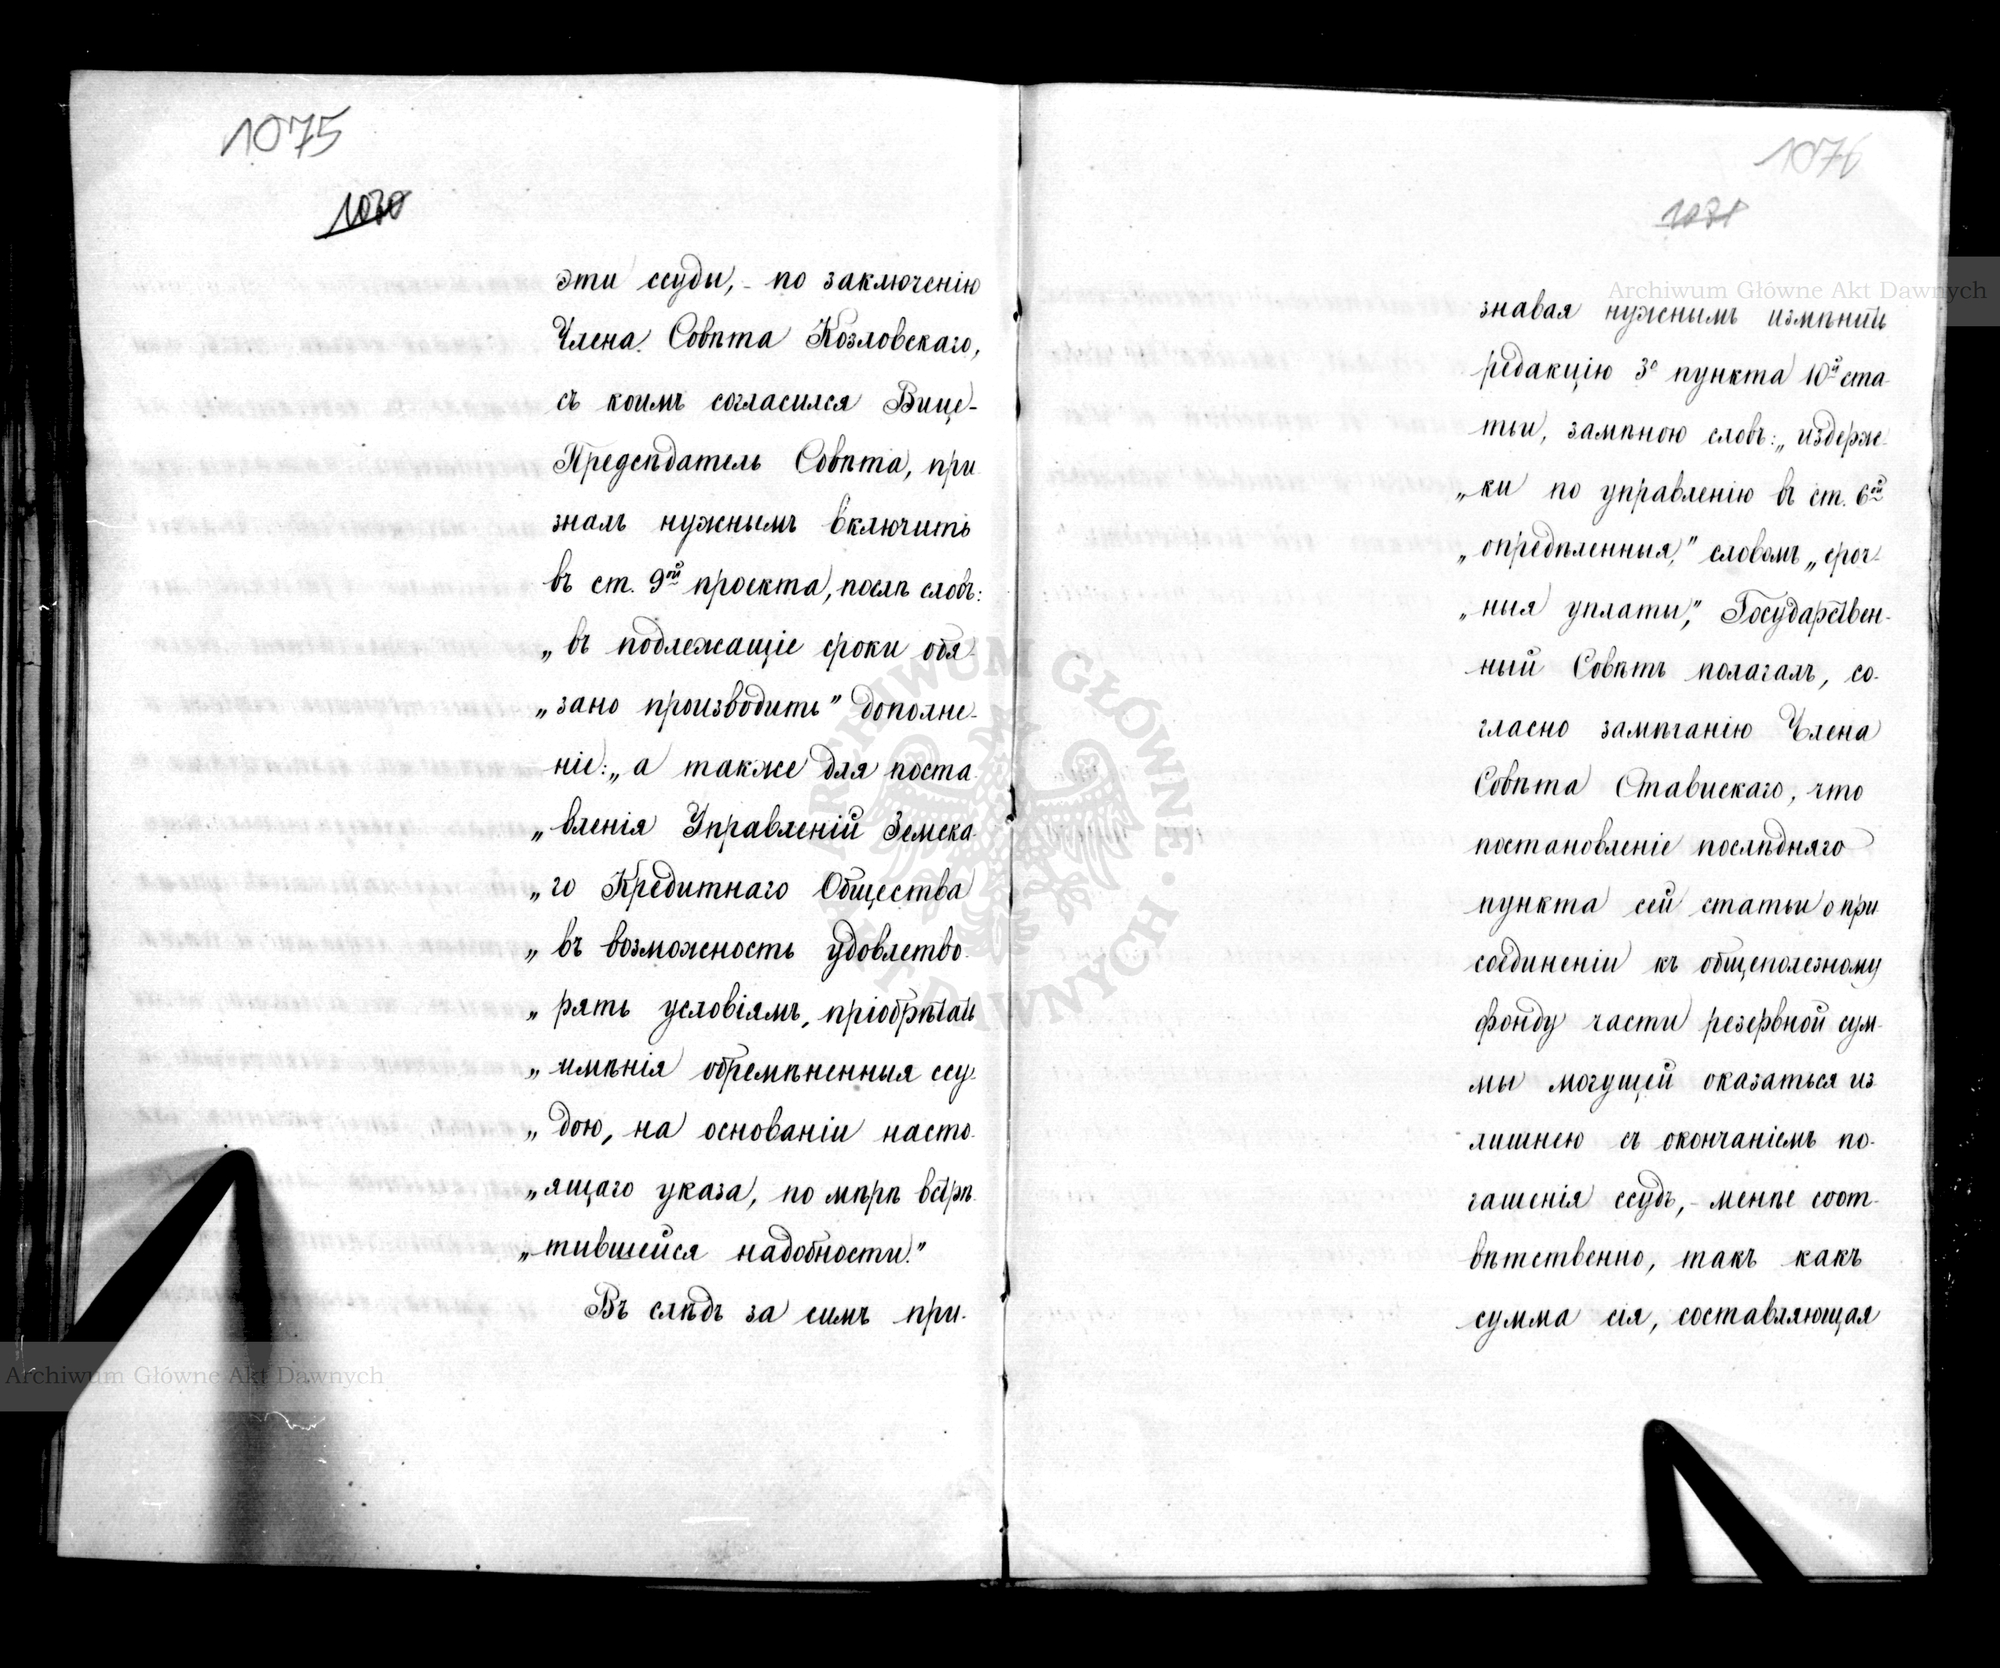 1075
1070
эти ссуды, - по заключенію
Члена Совѣта Козловскаго,
съ коимъ согласился Вице-
Предсѣдатель Совѣта, при
зналъ нужнымъ включить
въ ст. 9ой проекта, послѣ словъ:
„въ подлежащіе сроки обя-
„зано производить" дополне-
ніе: „а также для поста-
„вленія Управленій Земска-
„го Кредитнаго Общества
„въ возможность удовлетво-
„рять условіямъ, пріобрѣтать
„имѣнія обремѣненныя ссу-
„дою, на основаніи насто-
„ящаго указа, по мѣрѣ встрѣ-
„тившейся надобности."
Въ слѣдъ за симъ при-
1076
1071
знавая нужнымъ измѣнить
редакцію 3о пункта 10й ста-
тьи, замѣною словъ: „издерж-
„ки по управленію въ ст. 6ой
„опредѣленныя," словомъ „сроч-
„ныя уплаты," Государствен-
ный Совѣтъ полагалъ, со-
гласно замѣчанію Члена
Совѣта Ставискаго, что
постановленіе послѣдняго
пункта сей статьи о при
соединеніи къ общеполезному
фонду части резервной сум-
мы могущей оказаться из
лишнею съ окончаніемъ по-
гашенія ссудъ, - менѣе соот-
вѣтственно, такъ какъ
сумма сія, составляющая
Archiwum Główne Akt Dawnych
Archiwum Główne Akt Dawnych
ARCHIWUM GŁÓWNE AKT DAWNYCH